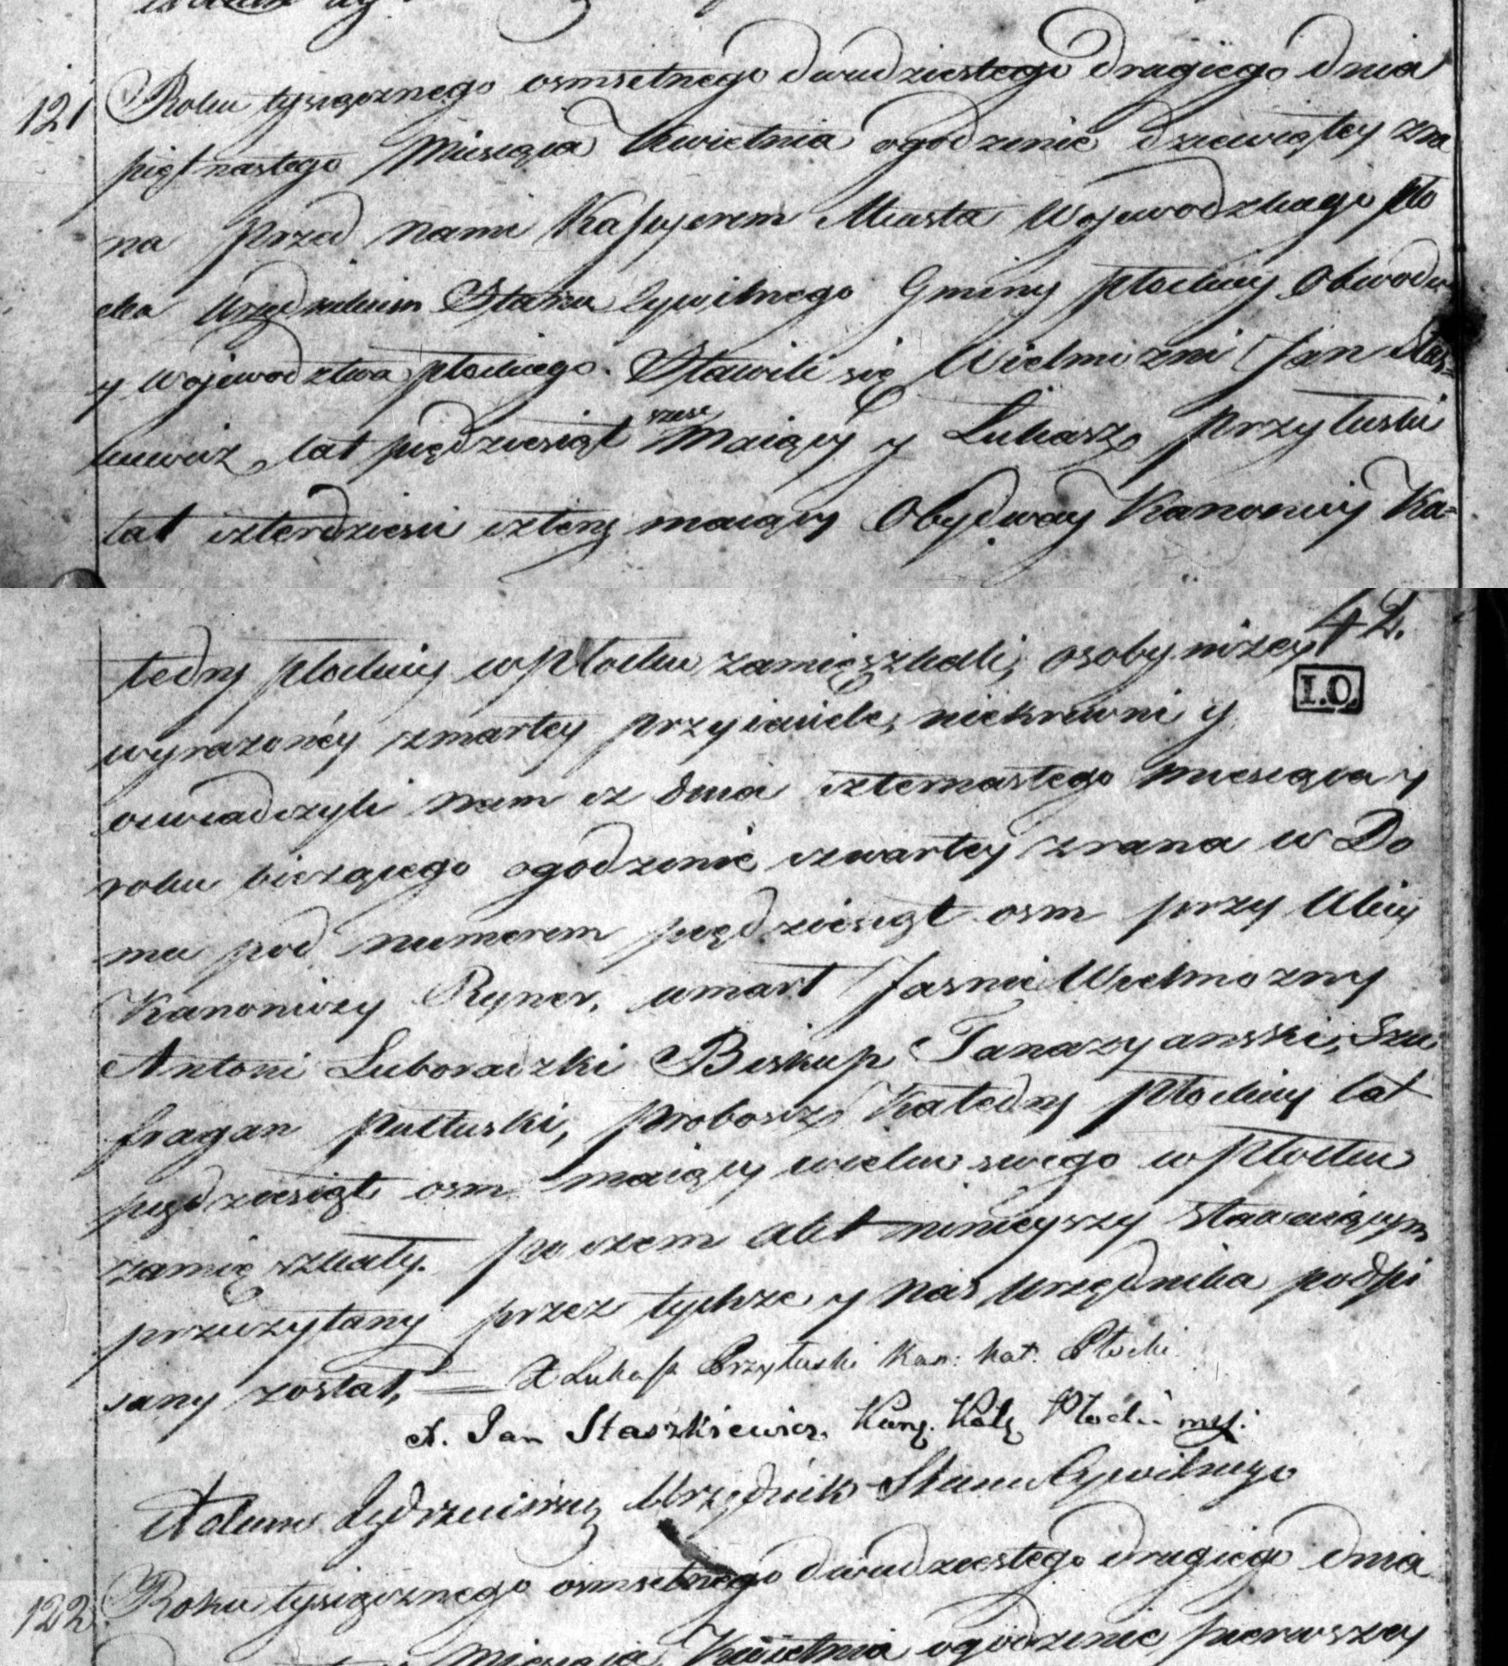 121 Roku tysiącznego osmsetnego dwudziestego drugiego dnia
piętnastego Miesiąca Kwietnia ogodzinie dziewiątey zra
na przed nami Kassyerem Miasta Wojewodzkiego Pło
cka Urzędnikiem Stanu Cywilnego Gminy Płockiey Obwodu
y Wojewodztwa Płockiego. Stawili się Wielmożni Jan Stas-
kiewicz, lat pięćdziesiąt szesc maiący y Łukasz Przyłuski
lat czterdzieści cztery maiący Obydway Kanonicy Ka-
42.
I.O.
tedry Płockiey w Płocku zamięszkali, osoby niżey
wyrażoney zmarłey przyiaciele, niekrewni y
oświadczyli nam iż dnia czternastego miesiąca y
roku bieżącego ogodzinie czwartey zrana w Do
mu pod numerem pięćdziesiąt osm przy Ulicy
Kanoniczy Rynek, umarł Jasnie Wielmożny
Antoni Luboradzki Biskup Tanazyanski, Szu
fragan Pułtuski, Proboszcz Katedry Płockiey lat
pięćdziesiąt osm maiący wieku swego w Płocku
zamięszkały. po czem Akt ninieyszy stawaiącym
przeczytany przez tychże y nas Urzędnika podpi
sany został, X Łukasz Przyłuski Kan: kat: Płocki
X. Jan Staszkiewicz. Kan. Kat. Płocki mp.
Urzędnik Stanu Cywilnego
122 Roku tysiącznego osmsetnego dwudziestego drugiego dnia
Miesiąca Kwietnia ogodzinie pierwszey